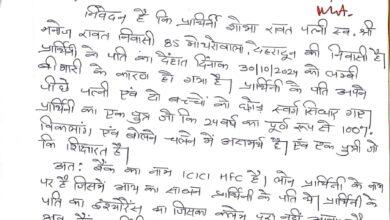 W.A.
निवेदन है कि प्रार्थिनी शोभा रावत पत्नी स्व. श्री
मनोज रावत निवासी 85 मोथरोवाला, देहरादून की निवासी है।
प्रार्थिनी के पति का देहांत दिनांक 30/10/2024 को लम्बी
बीमारी के कारण हो गया है। प्रार्थिनी के पति अपने
पीछे पत्नी एवं दो बच्चों को छोड़ स्वर्ग सिधार गए।
प्रार्थिनी का एक पुत्र जो कि 24 वर्ष का पूर्ण रूप से 100%
विकलांग एवं बोलने चलने में असमर्थ है। एवं एक पुत्री जो
कि शिक्षारत है।
अतः बैंक का नाम ICICI HFC है। लोन प्रार्थिनी के नाम
पर है जिसमें आय का साधन प्रार्थिनी के पति थे। प्रार्थिनी के
पति का इंश्योरेंस था जिसका